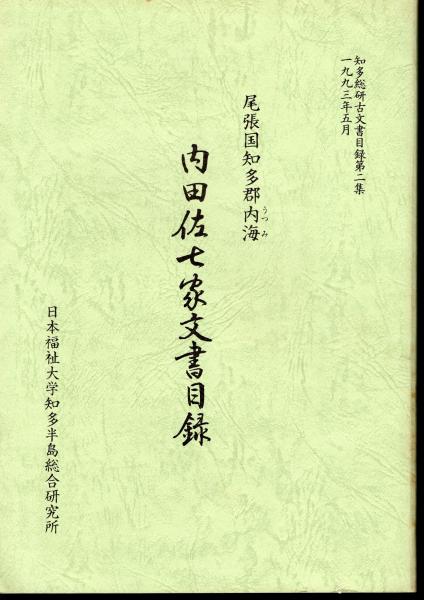 知多総研古文書目録第二集
一九九三年五月
尾張国知多郡内海
うつみ
内田佐七家文書目録
日本福祉大学知多半島総合研究所